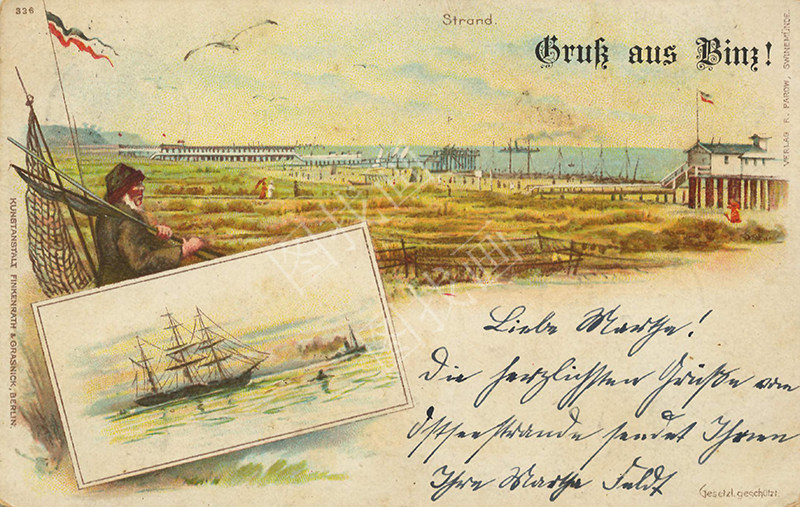 336
Strand.
Gruß aus Binz!
VERLAG R. PAROW, SWINEMÜNDE.
KUNSTANSTALT FINKENRATH & GRASNICK, BERLIN.
Liebe Martha!
Die herzlichsten Grüße vom
Ostseestrande sendet Ihnen
Ihre Martha Feldt
Gesetzl. geschützt.